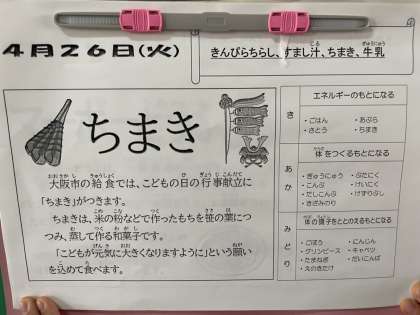 4月26日(火)
きんぴらちらし、すまし汁、ちまき、牛乳
ちまき
大阪市の給食では、こどもの日の行事献立に
「ちまき」がつきます。
ちまきは、米の粉などで作ったもちを笹の葉につ
つみ、蒸して作る和菓子です。
「こどもが元気に大きくなりますように」という願い
を込めて食べます。
き
エネルギーのもとになる
・ごはん ・あぶら
・さとう ・ちまき
あか
体をつくるもとになる
・ぎゅうにゅう ・ぶたにく
・こんぶ ・けいにく
・だしこんぶ ・けずりぶし
・きざみのり
みどり
体の調子をととのえるもとになる
・ごぼう ・にんじん
・グリンピース ・キャベツ
・たまねぎ ・だいこんば
・えのきたけ